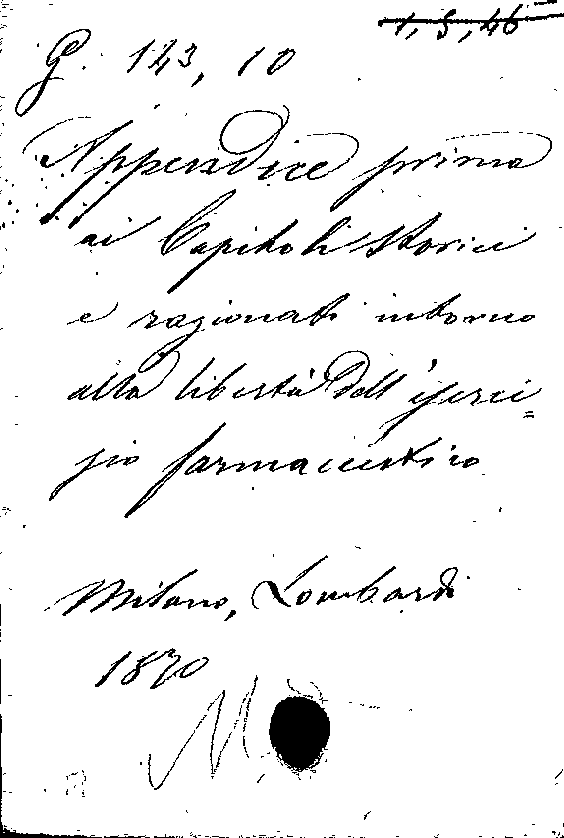 1, 5, 46
G. 123, 10
Appendice prima
ai Capitoli storici
e ragionati intorno
alla libertà dell'eserci=
zio farmaceutico
Milano, Lombardi
1870
M